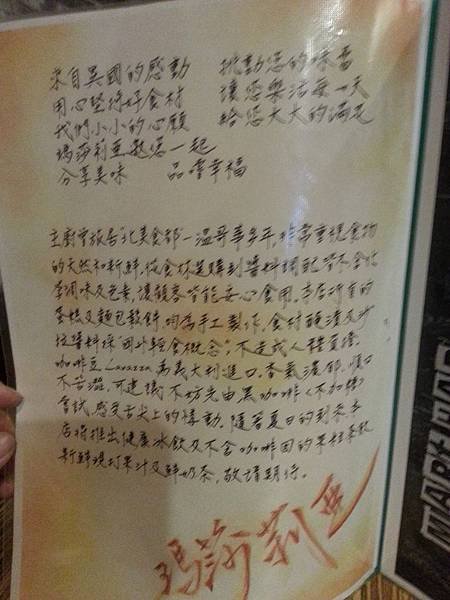 來自異國的感動 挑動您的味蕾
用心堅持好食材 讓您樂活每一天
我們小小的心願 給您大大的滿足
瑪莎莉亞邀您一起
分享美味 品嚐幸福
主廚曾旅居"北美食都"-溫哥華多年,非常重視食物
的天然和新鮮,從食材選購到醬料調配皆不含化
學調味及色素,讓顧客皆能安心食用。本店所有的
蛋糕及麵包鬆餅,均為手工製作,食材醃漬及沙
拉醬料採"國外輕食概念",不造成人體負擔。
咖啡豆Lavazza為義大利進口。香氣濃郁,順口
不苦澀,可建議不妨先由黑咖啡(不加糖)
嘗試,感受舌尖上的悸動。隨著夏日的到來,本
店將推出健康冰飲及不含咖啡因的果粒茶飲
新鮮現打果汁及鮮奶茶,敬請期待。
瑪莎莉亞